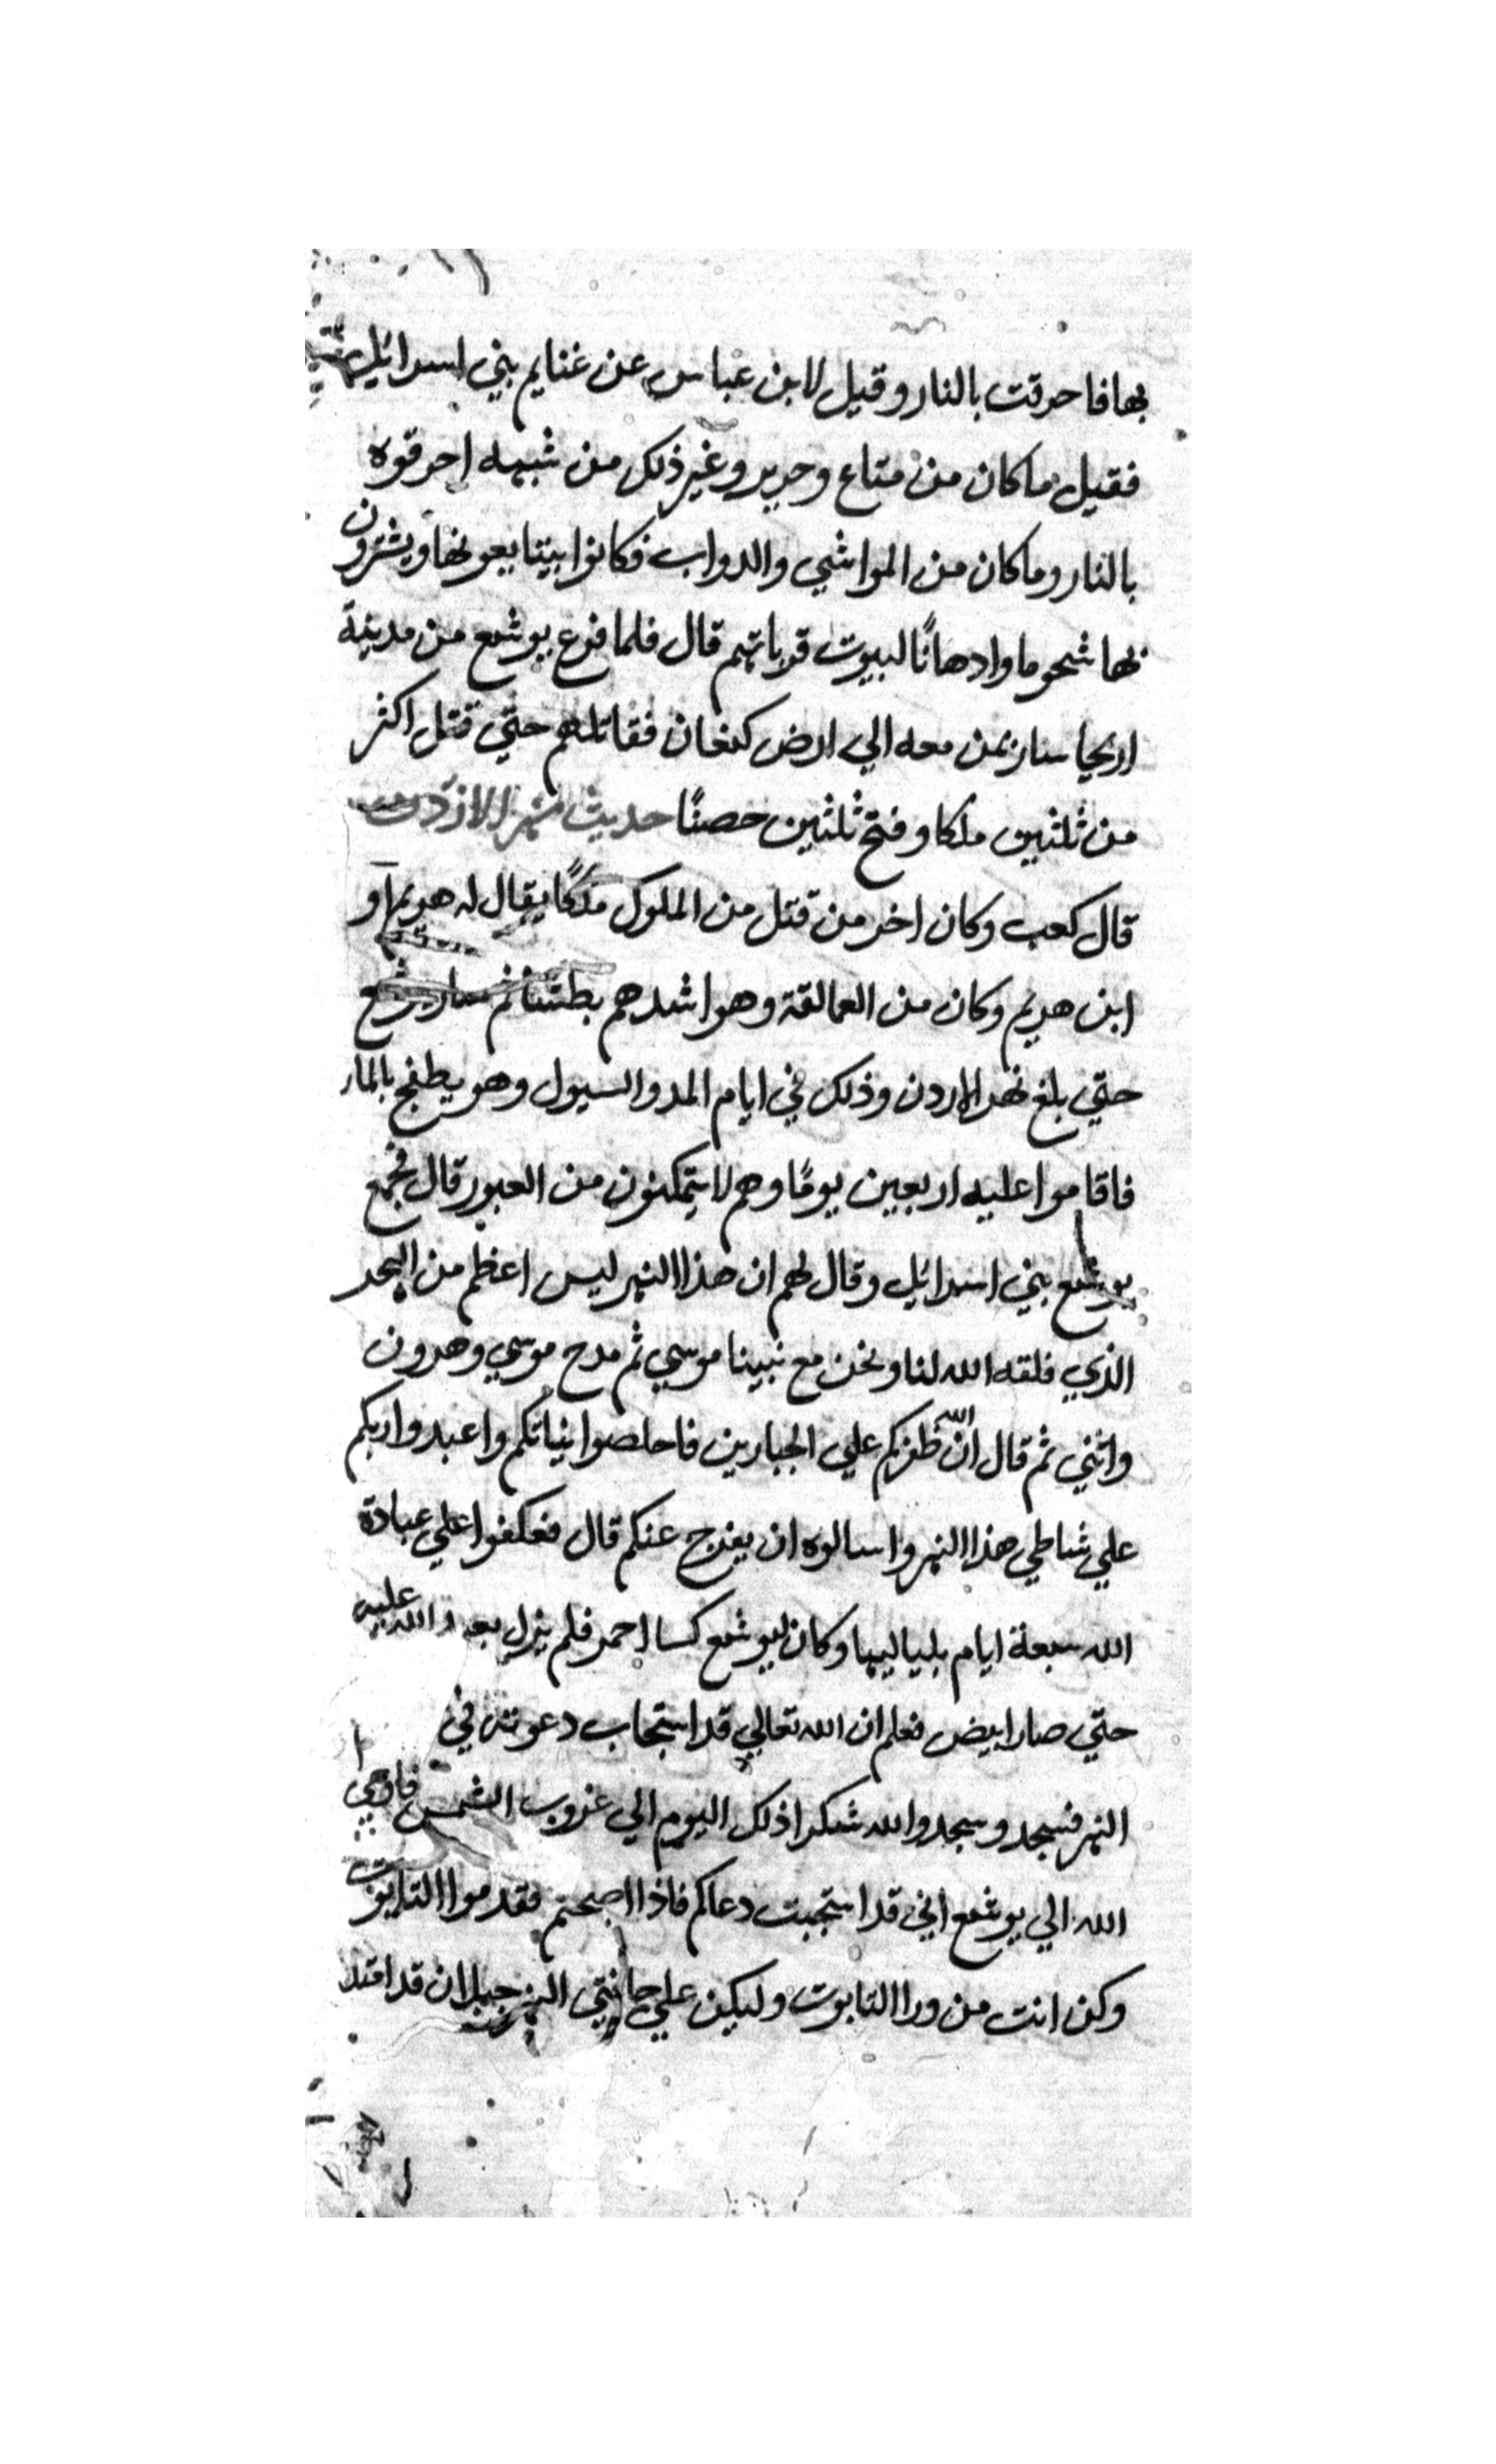 بها فاحرقت بالنار وقيل لابن عباس عن غنايم بني اسرائيل
فقيل ما كان من متاع وحرير وغير ذلك من شبهه احرقوه
بالنار وما كان من المواشي والدواب فكانوا يتبايعونها ويشترون
بها شحوما وادهانًا لبيوت قرباتهم قال فلما فرغ يوشع من مدينة
اريحا سار بمن معه الي ارض كنعان فقاتلهم حتي قتل اكثر
من ثلثين ملكا وفتح ثلثين حصنًا حديث نهر الازدن
قال كعب وكان اخر من قتل من الملوك ملكًا يقال له هريم او
ابن هريم وكان من العمالقة وهو اشدهم بطشا ثم سار يوشع
حتي بلغ نهر الاردن وذلك في ايام المد والسيول وهو يطفح بالماء
فاقاموا عليه اربعين يومًا وهم لا يتمكنون من العبور قال فجمع
يوشع بني اسرائيل وقال لهم ان هذا النهر ليس اعظم من البحر
الذي فلقه الله لنا ونحن مع نبينا موسي ثم مدح موسي وهرون
واثني ثم قال ان الله ظفركم علي الجبارين فاخلصوا نياتكم واعبدوا ربكم
علي شاطي هذا النهر واسالوه ان يفرج عنكم قال فعكفوا علي عبادة
الله سبعة ايام بلياليها وكان ليوشع كسا احمر فلم يزل يعبد الله عليه
حتي صار ابيض فعلم ان الله تعالي قد استجاب دعوته في
النهر فسجد وسجدوا لله شكرا ذلك اليوم الي غروب الشمس فاوحي
الله الي يوشع اني قد استجبت دعاكم فاذا اصبحتم فقدموا التابوت
وكن انت من ورا التابوت وليكن علي جانبتي النهر جبلان قد امتد